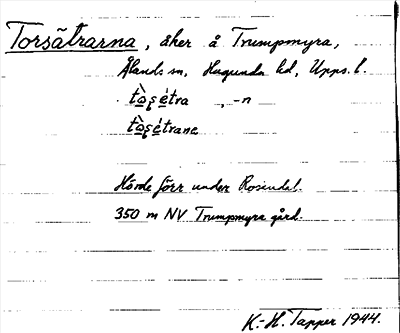 Torsätrarna, åker å Trumpmyra,
Ålands sn, Hagunda hd, Upps. l.
tò̱ʂétra , -n
tò̱ʂétrane
Hörde förr under Rosendal.
350 m NV Trumpmyra gård.
K.-H. Tapper 1944.